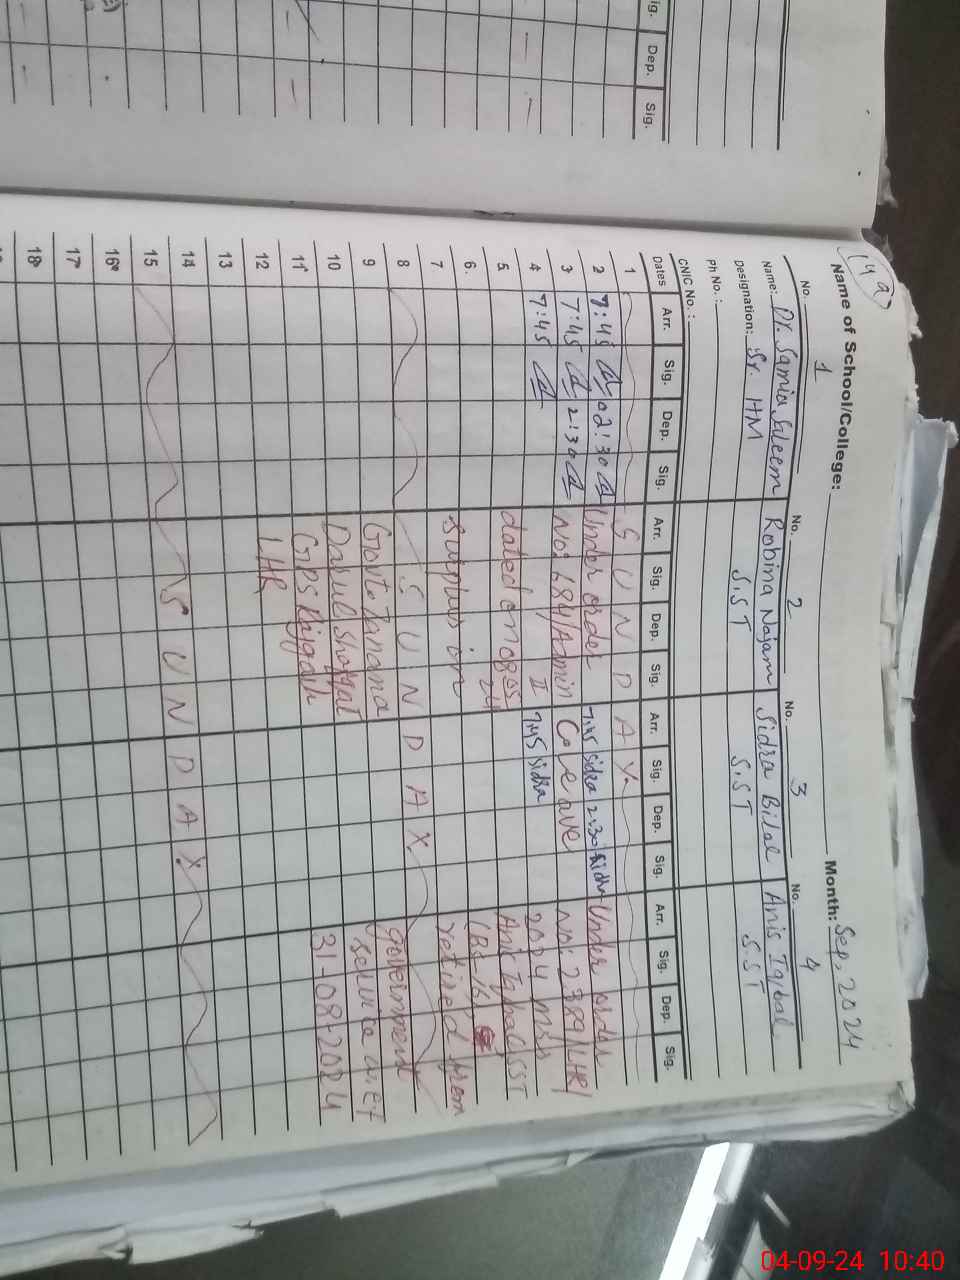 14a
Name of School/College: Month: Sep, 2024
No. 1 No. 2 No. 3 No. 4
Name: Dr. Samia Saleem Robina Najam Sidra Bilal Anis Iqbal
Designation: Sr. HM S.ST S.ST S.ST
Ph No. :
CNIC No. :
Dates Arr. Sig. Dep. Sig. Arr. Sig. Dep. Sig. Arr. Sig. Dep. Sig. Arr. Sig. Dep. Sig.
1 S U N D A Y
2 7:45 02:30 Under order 7:45 Sidra 2:30 Sidra Under order
3 7:45 2:30 No: 684/Admin C. leave No: 2389/LHR/
4 7:45 II 7:45 Sidra 2024
5. dated 24 Anis Iqbal SST
6. (BS-16)
7 surplus in retired from
8 S U N D A Y government
9 Govt. Zanana
10 Darul Shafqat 31-08-2024
11 GPS Rajgarh
12 LHR
13
14
15 S U N D A Y
16
17
18
Sig.
Dep.
Sig.
04-09-24 10:40